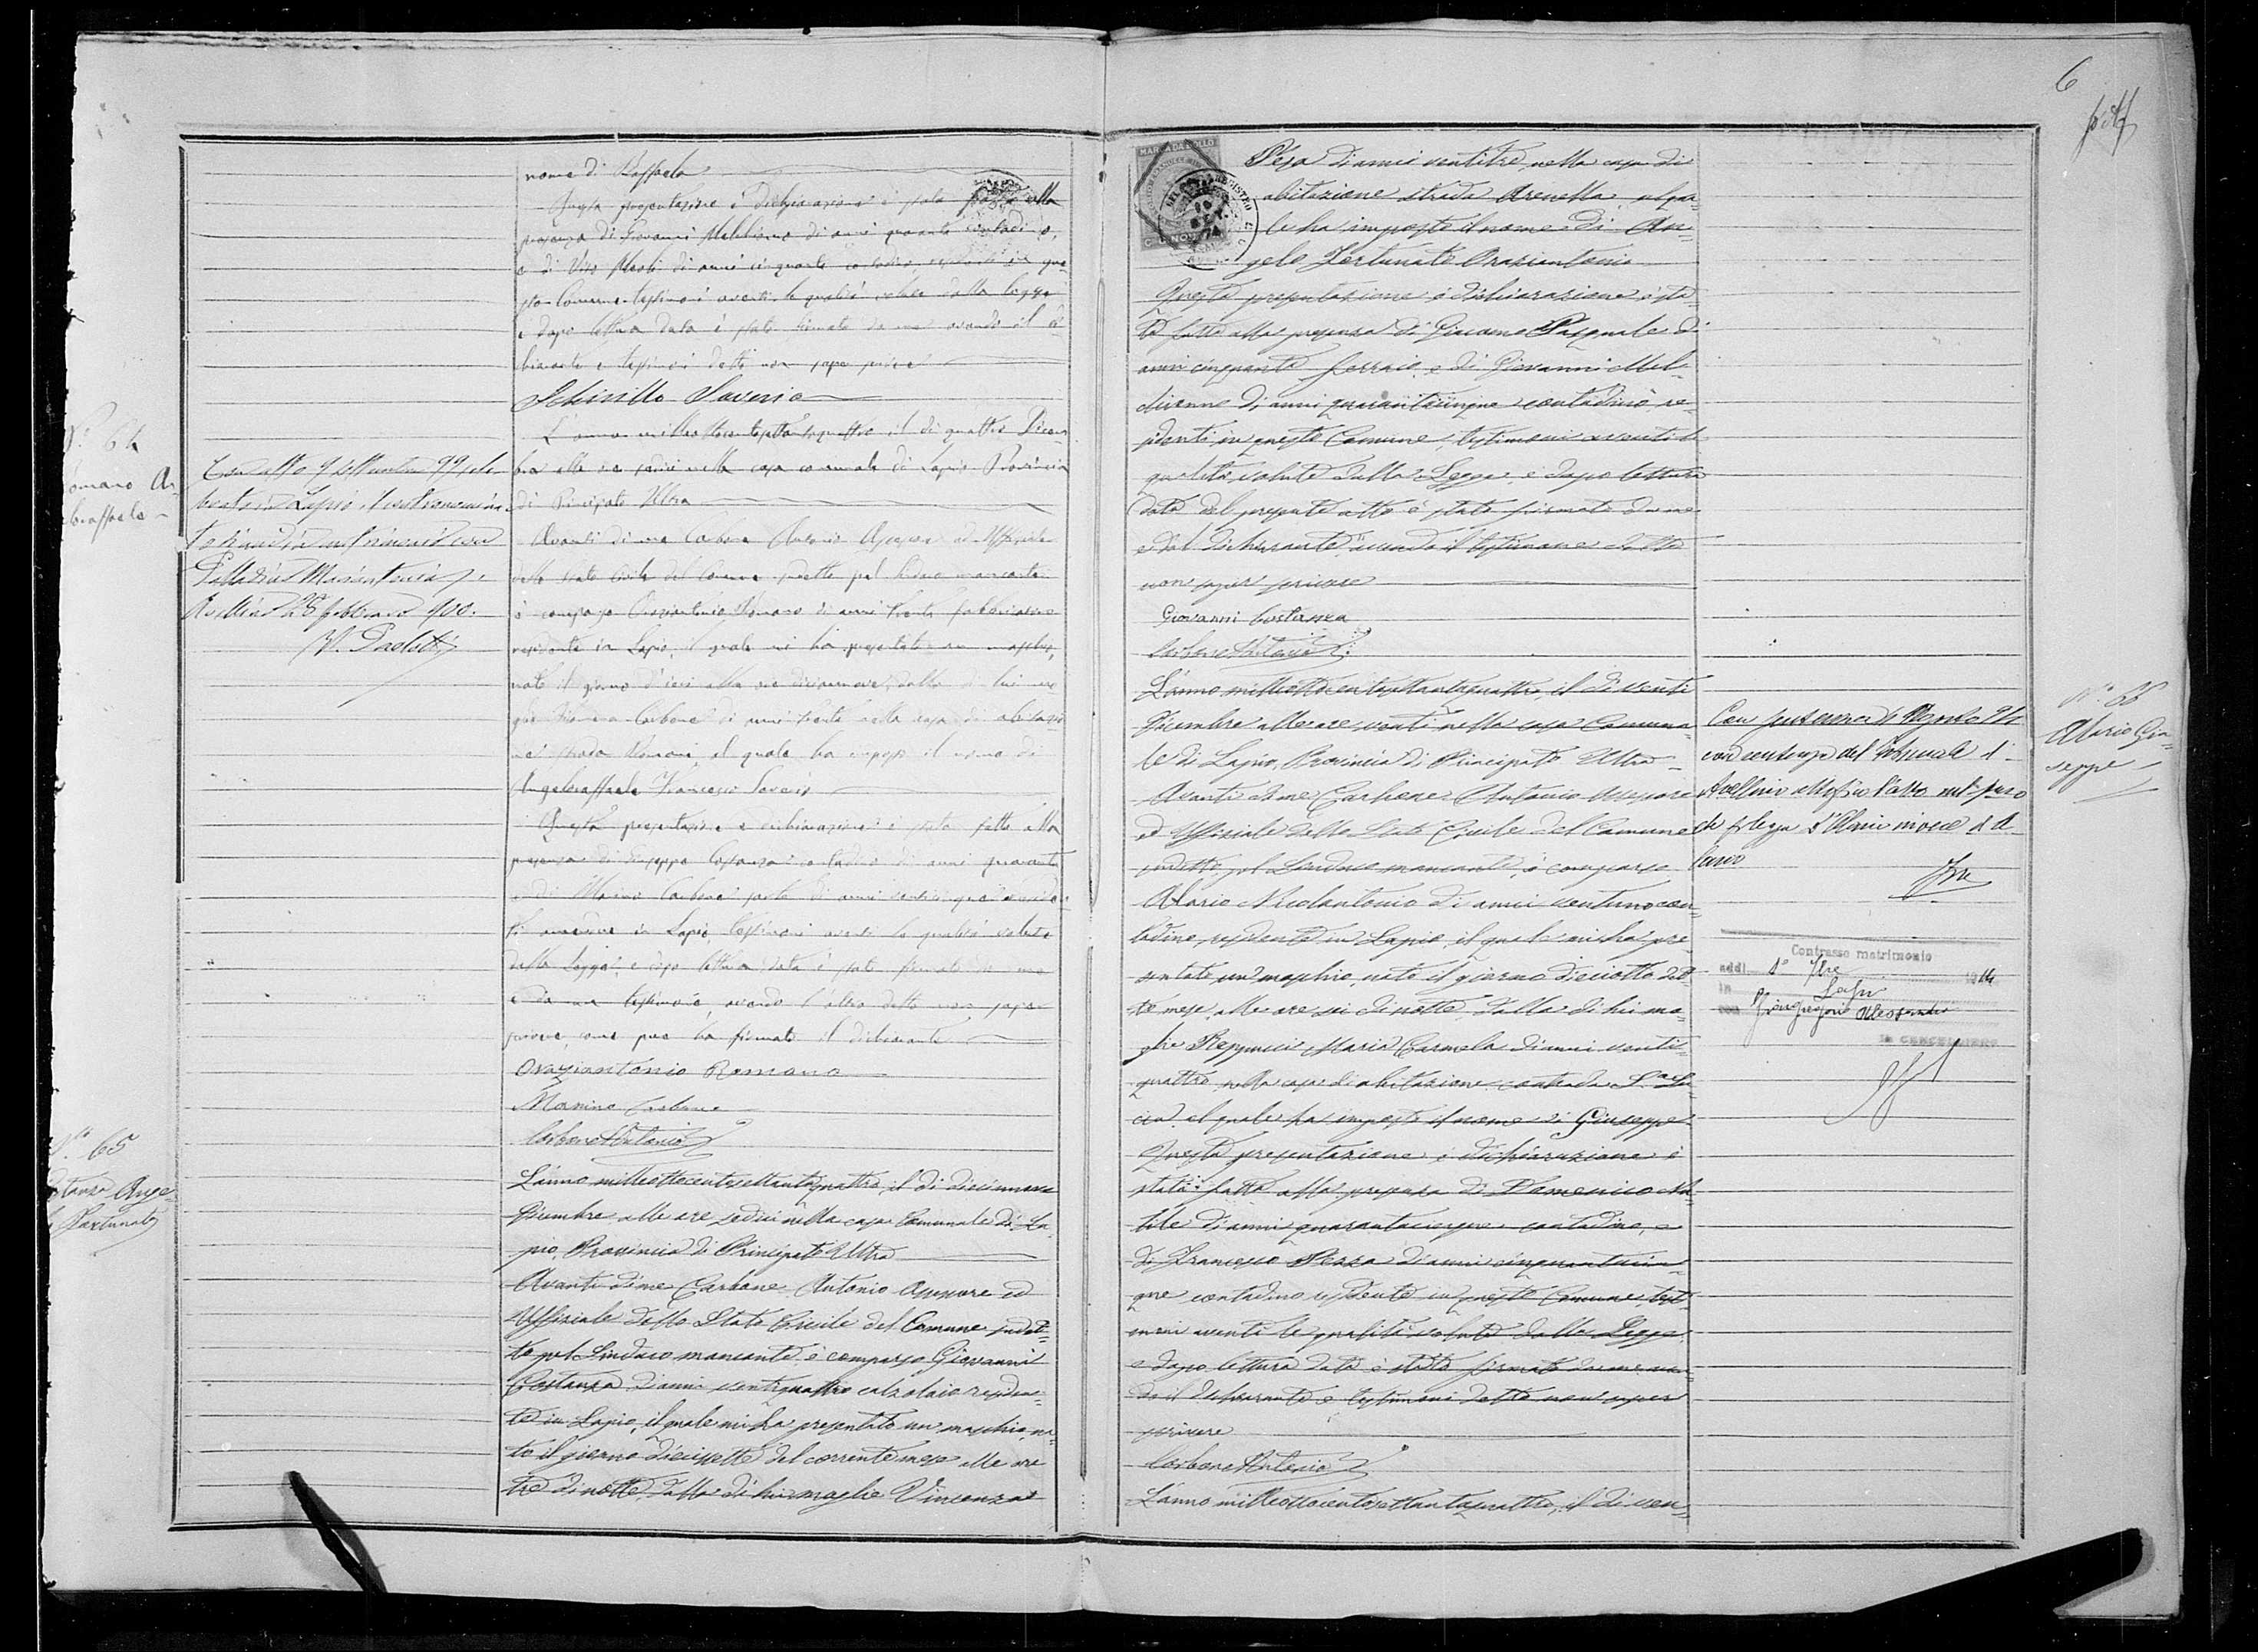 6
nome di Raffaela
Questa presentazione e dichiarazione è stata fatta alla
presenza di Giovanni di anni quaranta contadino,
e di Vito di anni cinquanta contadino, residenti in que-
sto Comune testimoni aventi le qualità volute dalla legge
e dopo lettura data è stato firmato da me avendo il di-
chiarante e testimoni detto non saper scrivere
Schirillo Saverio
N.° 64
Romano An-
geloraffaele
L'anno milleottocentosettantaquattro il di quattro Decem-
bre alle ore sedici nella casa comunale di Lapio Provincia
di Principato Ultra
Avanti di me Carbone Antonio Assessore ed Uffiziale
dello Stato Civile del Comune suddetto pel Sindaco mancante
è comparso Oraziantonio Romano di anni trenta
residente in Lapio, il quale mi ha presentato un maschio,
nato il giorno d'ieri alle ore diciannove, dalla di lui mo-
glie Carbone di anni trenta nella casa di abitazio-
ne strada Romani al quale ha imposto il nome di
Angeloraffaele Francesco Saverio
Questa presentazione e dichiarazione è stata fatta alla
presenza di Giuseppe Costanza contadino di anni quaranta
e di Marino Carbone di anni venticinque residen-
ti amendue in Lapio, testimoni aventi le qualità volute
dalla Legge, e dopo lettura data è stato firmato da me
e da un testimonio, avendo l'altro detto non saper
scrivere, come pure ha firmato il dichiarante
Oraziantonio Romano
Marino Carbone
Carbone Antonio
Lapio
matrimonio con
Avellino 28 febbraio 900.
N.° 65
Costanza Ange-
lo Fortunato
L'anno milleottocentosettantaquattro, il di diciannove
Dicembre alle ore sedici nella casa Comunale di La-
pio, Provincia di Principato Ultra
Avanti di me Carbone Antonio Assessore ed
Uffiziale dello Stato Civile del Comune sudet-
to pel Sindaco mancante, è comparso Giovanni
Costanza di anni ventiquattro calzolaio residen-
te in Lapio, il quale mi ha presentato un maschio, na-
to il giorno diecissette del corrente mese alle ore
tre di notte, dalla di lui moglie Vincenza
MARCA DA BOLLO
di anni ventitre, nella casa di
abitazione strada Arenella, al qua-
le ha imposto il nome di An-
gelo Fortunato Oraziantonio
Questa presentazione e dichiarazione è sta-
ta fatta alla presenza di Giacomo Pasquale di
anni cinquanta ferraio, e di Giovanni Mel-
chionno di anni quarantacinque contadino, re-
sidenti in questo Comune, testimoni aventi le
qualità volute dalla Legge, e dopo lettura
data del presente atto è stato firmato da me
e dal dichiarante, avendo il testimone detto
non saper scrivere
Giovanni Costanza
Carbone Antonio
N.° 66
Alario Giu-
seppe
L'anno milleottocentosettantaquattro, il di venti
Dicembre alle ore venti nella casa Comuna-
le di Lapio, Provincia di Principato Ultra
Avanti di me Carbone Antonio Assessore
ed Uffiziale dello Stato Civile del Comune
sudetto pel Sindaco mancante, è comparso
Alario Nicolantonio di anni ventuno con-
tadino, residente in Lapio, il quale mi ha pre-
sentato un maschio, nato il giorno dieciotto det-
to mese, alle ore sei di notte dalla di lui mo-
glie Reppucci Maria Carmela di anni venti-
quattro, nella casa di abitazione contrada S.a Lu-
cia, al quale ha imposto il nome di Giuseppe
Questa presentazione e dichiarazione è
stata fatta alla presenza di Domenico Na-
tile di anni quarantacinque contadino, e
di Francesco di anni cinquantacin-
que contadino residenti in questo Comune, testi-
moni aventi le qualità volute dalla Legge
e dopo lettura data è stato firmato da me aven-
do il dichiarante e testimoni detto non saper
scrivere
Carbone Antonio
L'anno milleottocentosettantaquattro, il di ven-
con sentenza del Tribunale di
Avellino
Contrasso matrimonio
addì 1914
in Lapio
con
IL CANCELLIERE